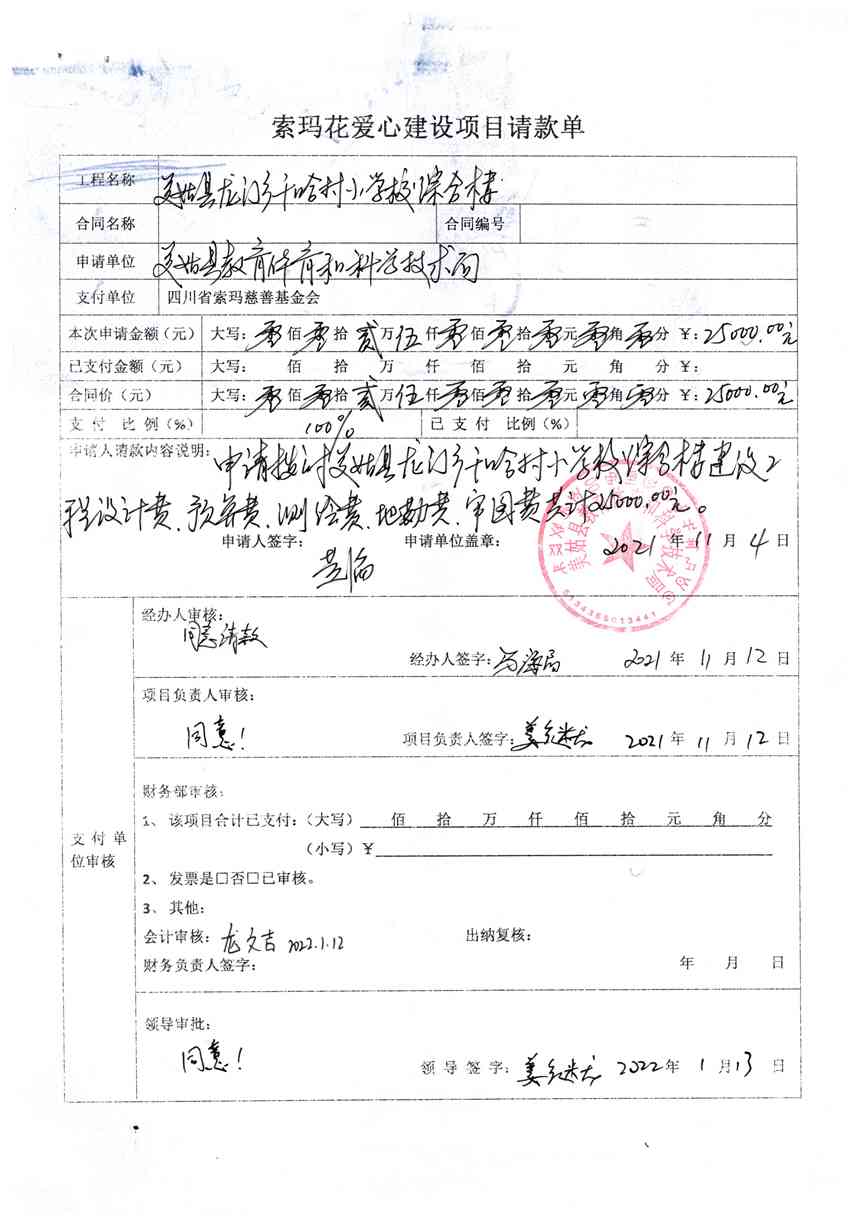 索玛花爱心建设项目请款单
工程名称 美姑县龙门乡干哈村小学校综合楼
合同名称 合同编号
申请单位 美姑县教育体育和科学技术局
支付单位 四川省索玛慈善基金会
本次申请金额（元） 大写：零佰零拾贰万伍仟零佰零拾零元零角零分 ￥：25000.00元
已支付金额（元） 大写： 佰 拾 万 仟 佰 拾 元 角 分 ￥：
合同价（元） 大写：零佰零拾贰万伍仟零佰零拾零元零角零分 ￥：25000.00元
支 付 比 例（%） 100% 已 支 付 比 例（%）
申请人请款内容说明：申请拨付美姑县龙门乡干哈村小学校综合楼建设工
程设计费、预算费、测绘费、地勘费、审图费共计25000.00元。
申请人签字： 申请单位盖章： 2021年11月4日
5134365013441
经办人审核：
同意请款
经办人签字： 2021年11月12日
项目负责人审核：
同意！ 项目负责人签字： 2021年11月12日
支付单位审核
财务部审核：
1、该项目合计已支付：（大写） 佰 拾 万 仟 佰 拾 元 角 分
（小写）￥
2、发票是□否□已审核。
3、其他：
会计审核：龙文吉 2022.1.12 出纳复核：
财务负责人签字： 年 月 日
领导审批：
同意！ 领 导 签 字： 2022年1月13日